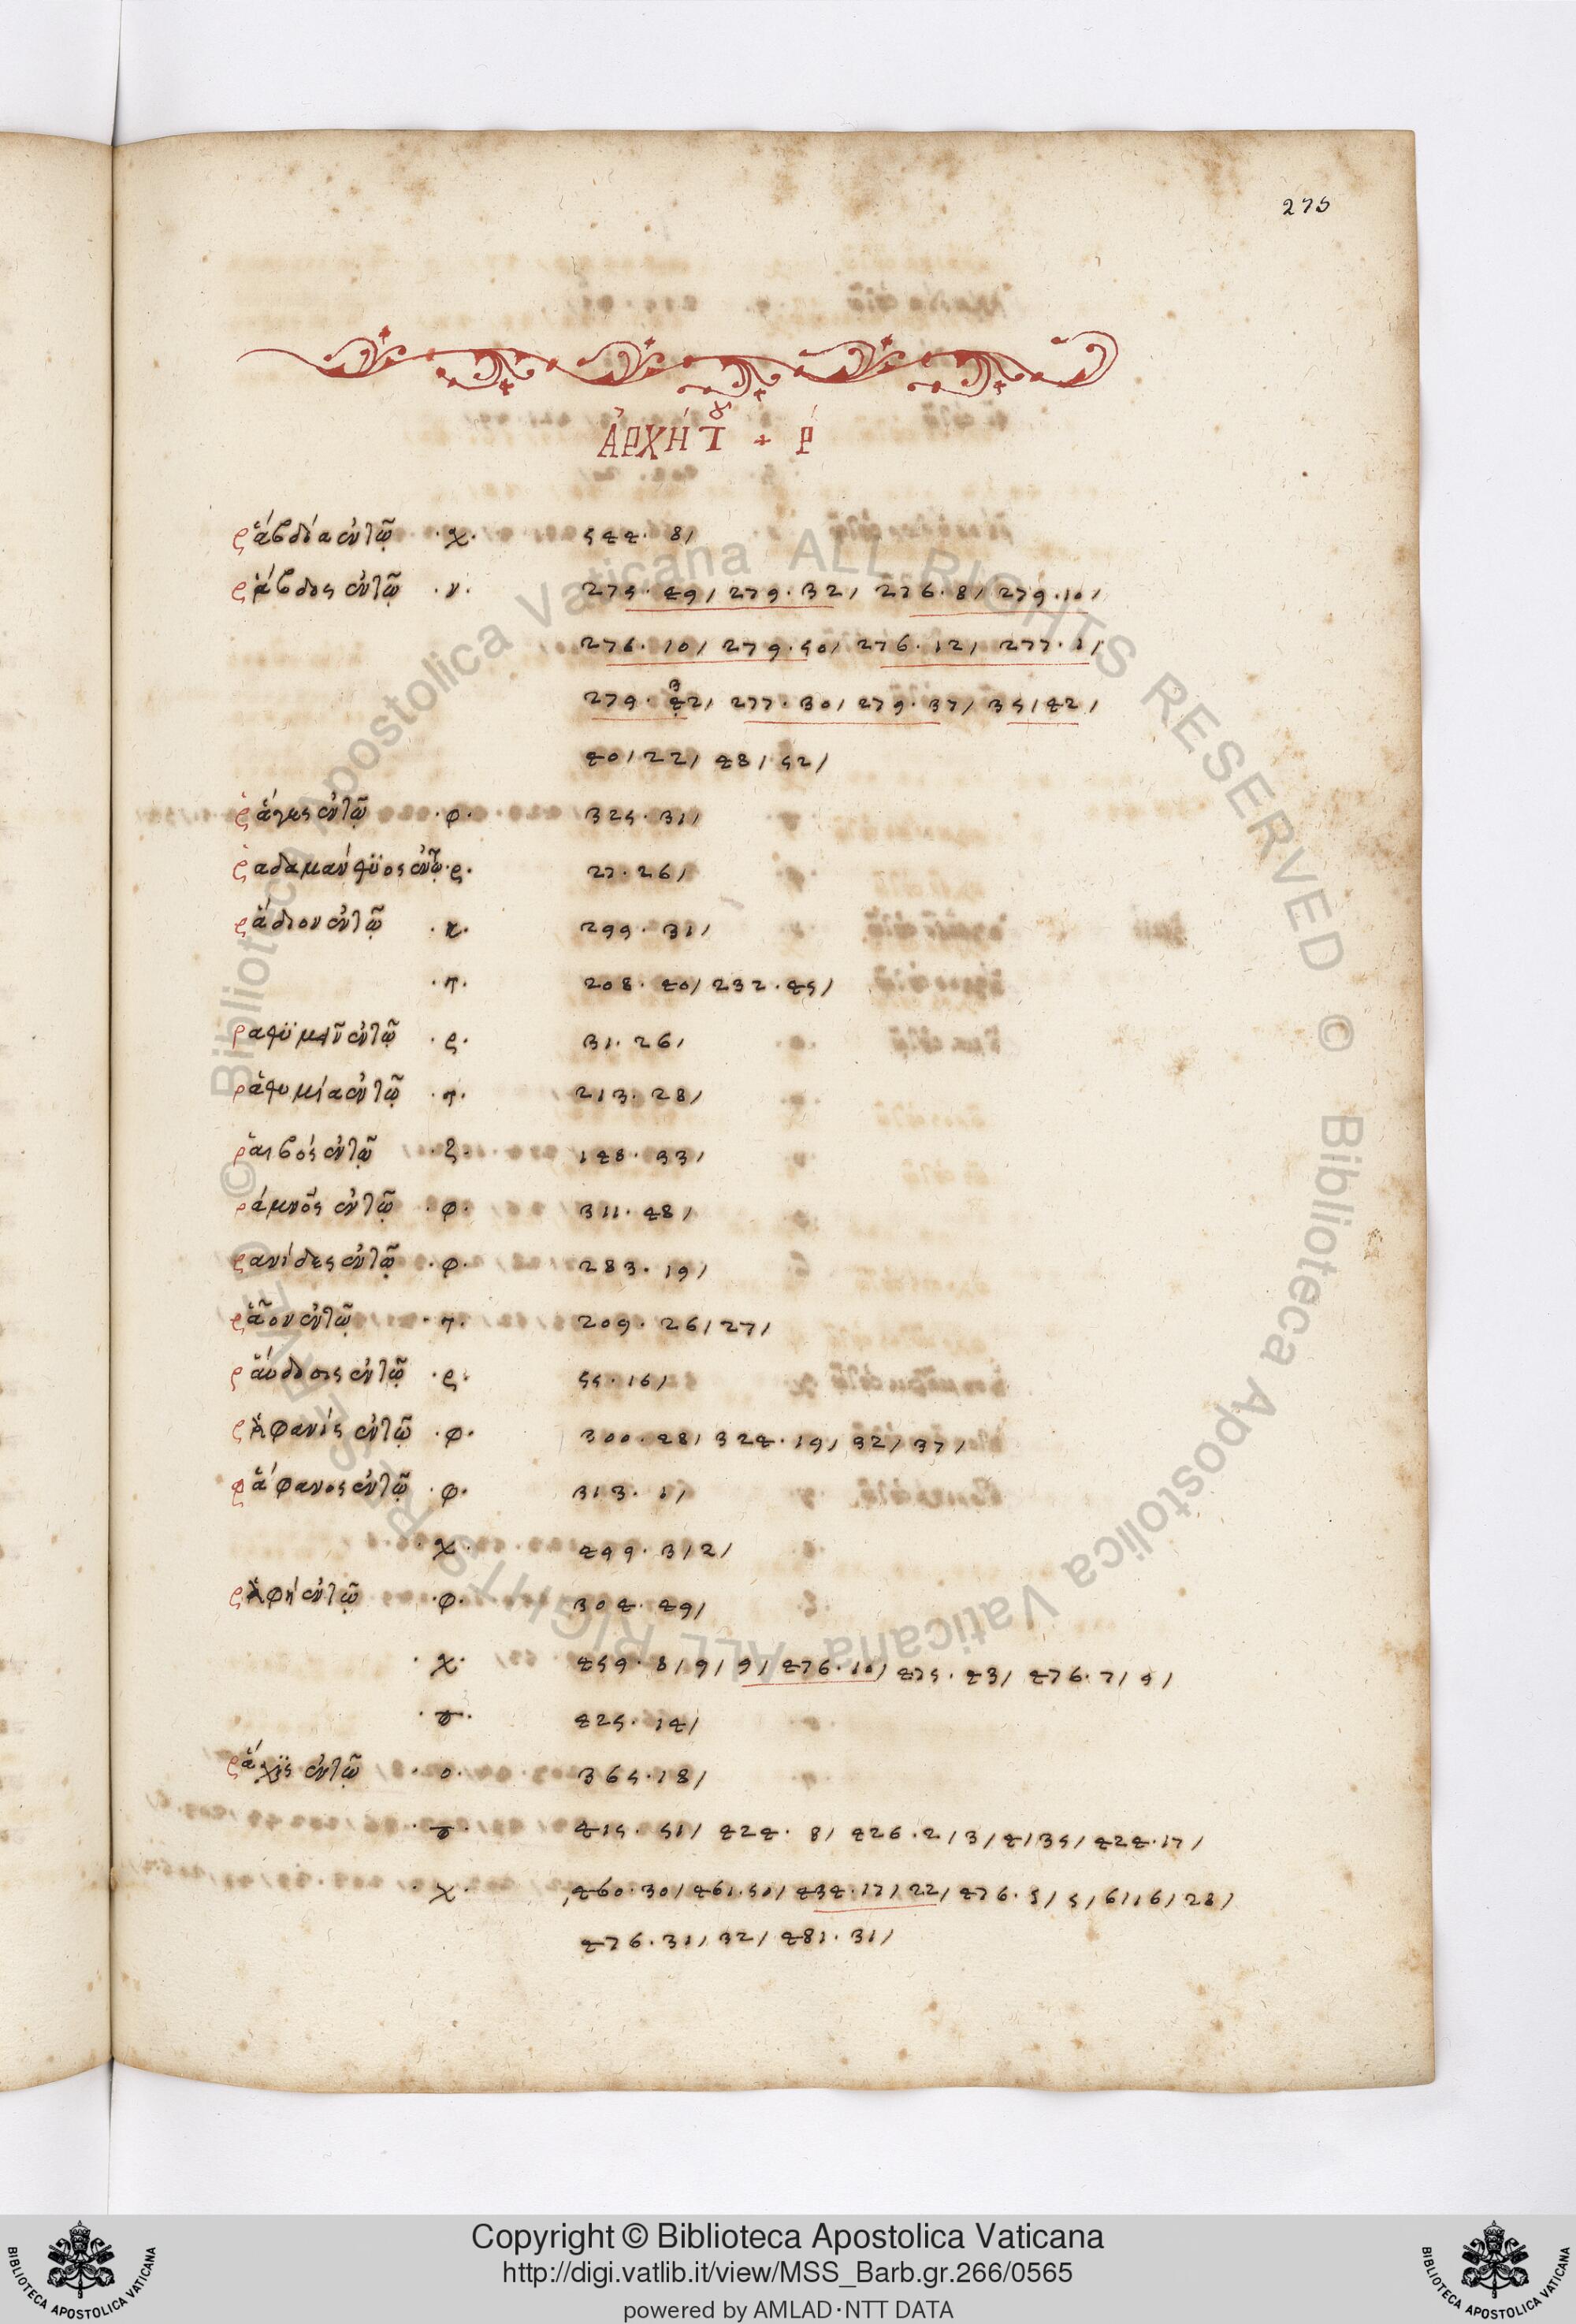 275
ἈΡΧΉ ΤοῦΡ
ῥάβδία ἐν τῷ ·χ· 544· 8/
ῥάβδος ἐν τῷ ·ν· 275· 49/ 279· 32/ 276· 8/ 279· 10/
276· 10/ 279· 50/ 276· 12/ 277· 1/
279· 42/ 277· 30/ 279· 37/ 35/ 42/
40/ 22/ 48/ 52/
ῥάγες ἐν τῷ ·φ· 325· 31/
ῥαδαμανθϋος ἐν τῷ ·ρ· 27· 26/
ῥάδιον ἐν τῷ ·κ· 299· 31/
·π· 208· 40/ 232· 45/
ῥαθϋμεῖν ἐν τῷ ·ρ· 31· 26/
ῥαθυμία ἐν τῷ ·π· 213· 28/
ῥαιβός ἐν τῷ ·ξ· 148· 33/
ῥάμνος ἐν τῷ ·φ· 311· 48/
ῥανίδες ἐν τῷ ·φ· 283· 19/
ῥᾶον ἐν τῷ ·π· 209· 26/ 27/
ἐν τῷ ·ρ· 55· 16/
ῥαφανίς ἐν τῷ ·φ· 300· 28/ 324· 19/ 32/ 37/
ῥάφανος ἐν τῷ ·φ· 313· 1/
·χ· 499· 3/ 2/
ῥαφή ἐν τῷ ·φ· 304· 49/
·χ· 459· 8/ 9/ 9/ 476· 10/ 475· 43/ 476· 7/ 9/
425· 14/
ῥάχϊς ἐν τῷ ·ο· 365· 18/
415· 51/ 424· 8/ 426· 2/ 3/ 4/ 35/ 424· 17/
·χ· 460· 30/ 461· 50/ 434· 17/ 22/ 476· 5/ 5/ 6/ 16/ 28/
476· 31/ 32/ 481· 31/
© Biblioteca Apostolica Vaticana ALL RIGHTS RESERVED © Biblioteca Apostolica Vaticana ALL RIGHTS RESERVED
Copyright © Biblioteca Apostolica Vaticana
http://digi.vatlib.it/view/MSS_Barb.gr.266/0565
powered by AMLAD·NTT DATA
BIBLIOTECA APOSTOLICA VATICANA
BIBLIOTECA APOSTOLICA VATICANA